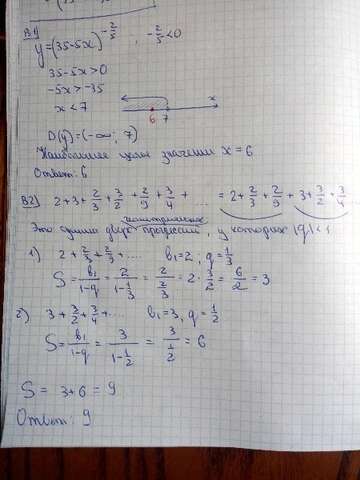 В1)
y=(35-5x)^{-2/5} , -2/5<0
35-5x>0
-5x>-35
x<7
6 7 x
D(y)=(-∞; 7)
Наибольшее целое значение x=6
Ответ: 6
В2) 2+3+2/3+3/2+2/9+3/4+ ... = 2+2/3+2/9+3+3/2+3/4...
геометрических
Это сумма двух прогрессий, у которых |q|<1
1) 2+2/3+2/9+.... b₁=2, q=1/3
S=b₁/(1-q)=2/(1-1/3)=2/(2/3)=2·3/2=6/2=3
2) 3+3/2+3/4+... b₁=3, q=1/2
S=b₁/(1-q)=3/(1-1/2)=3/(1/2)=6
S= 3+6=9
Ответ: 9